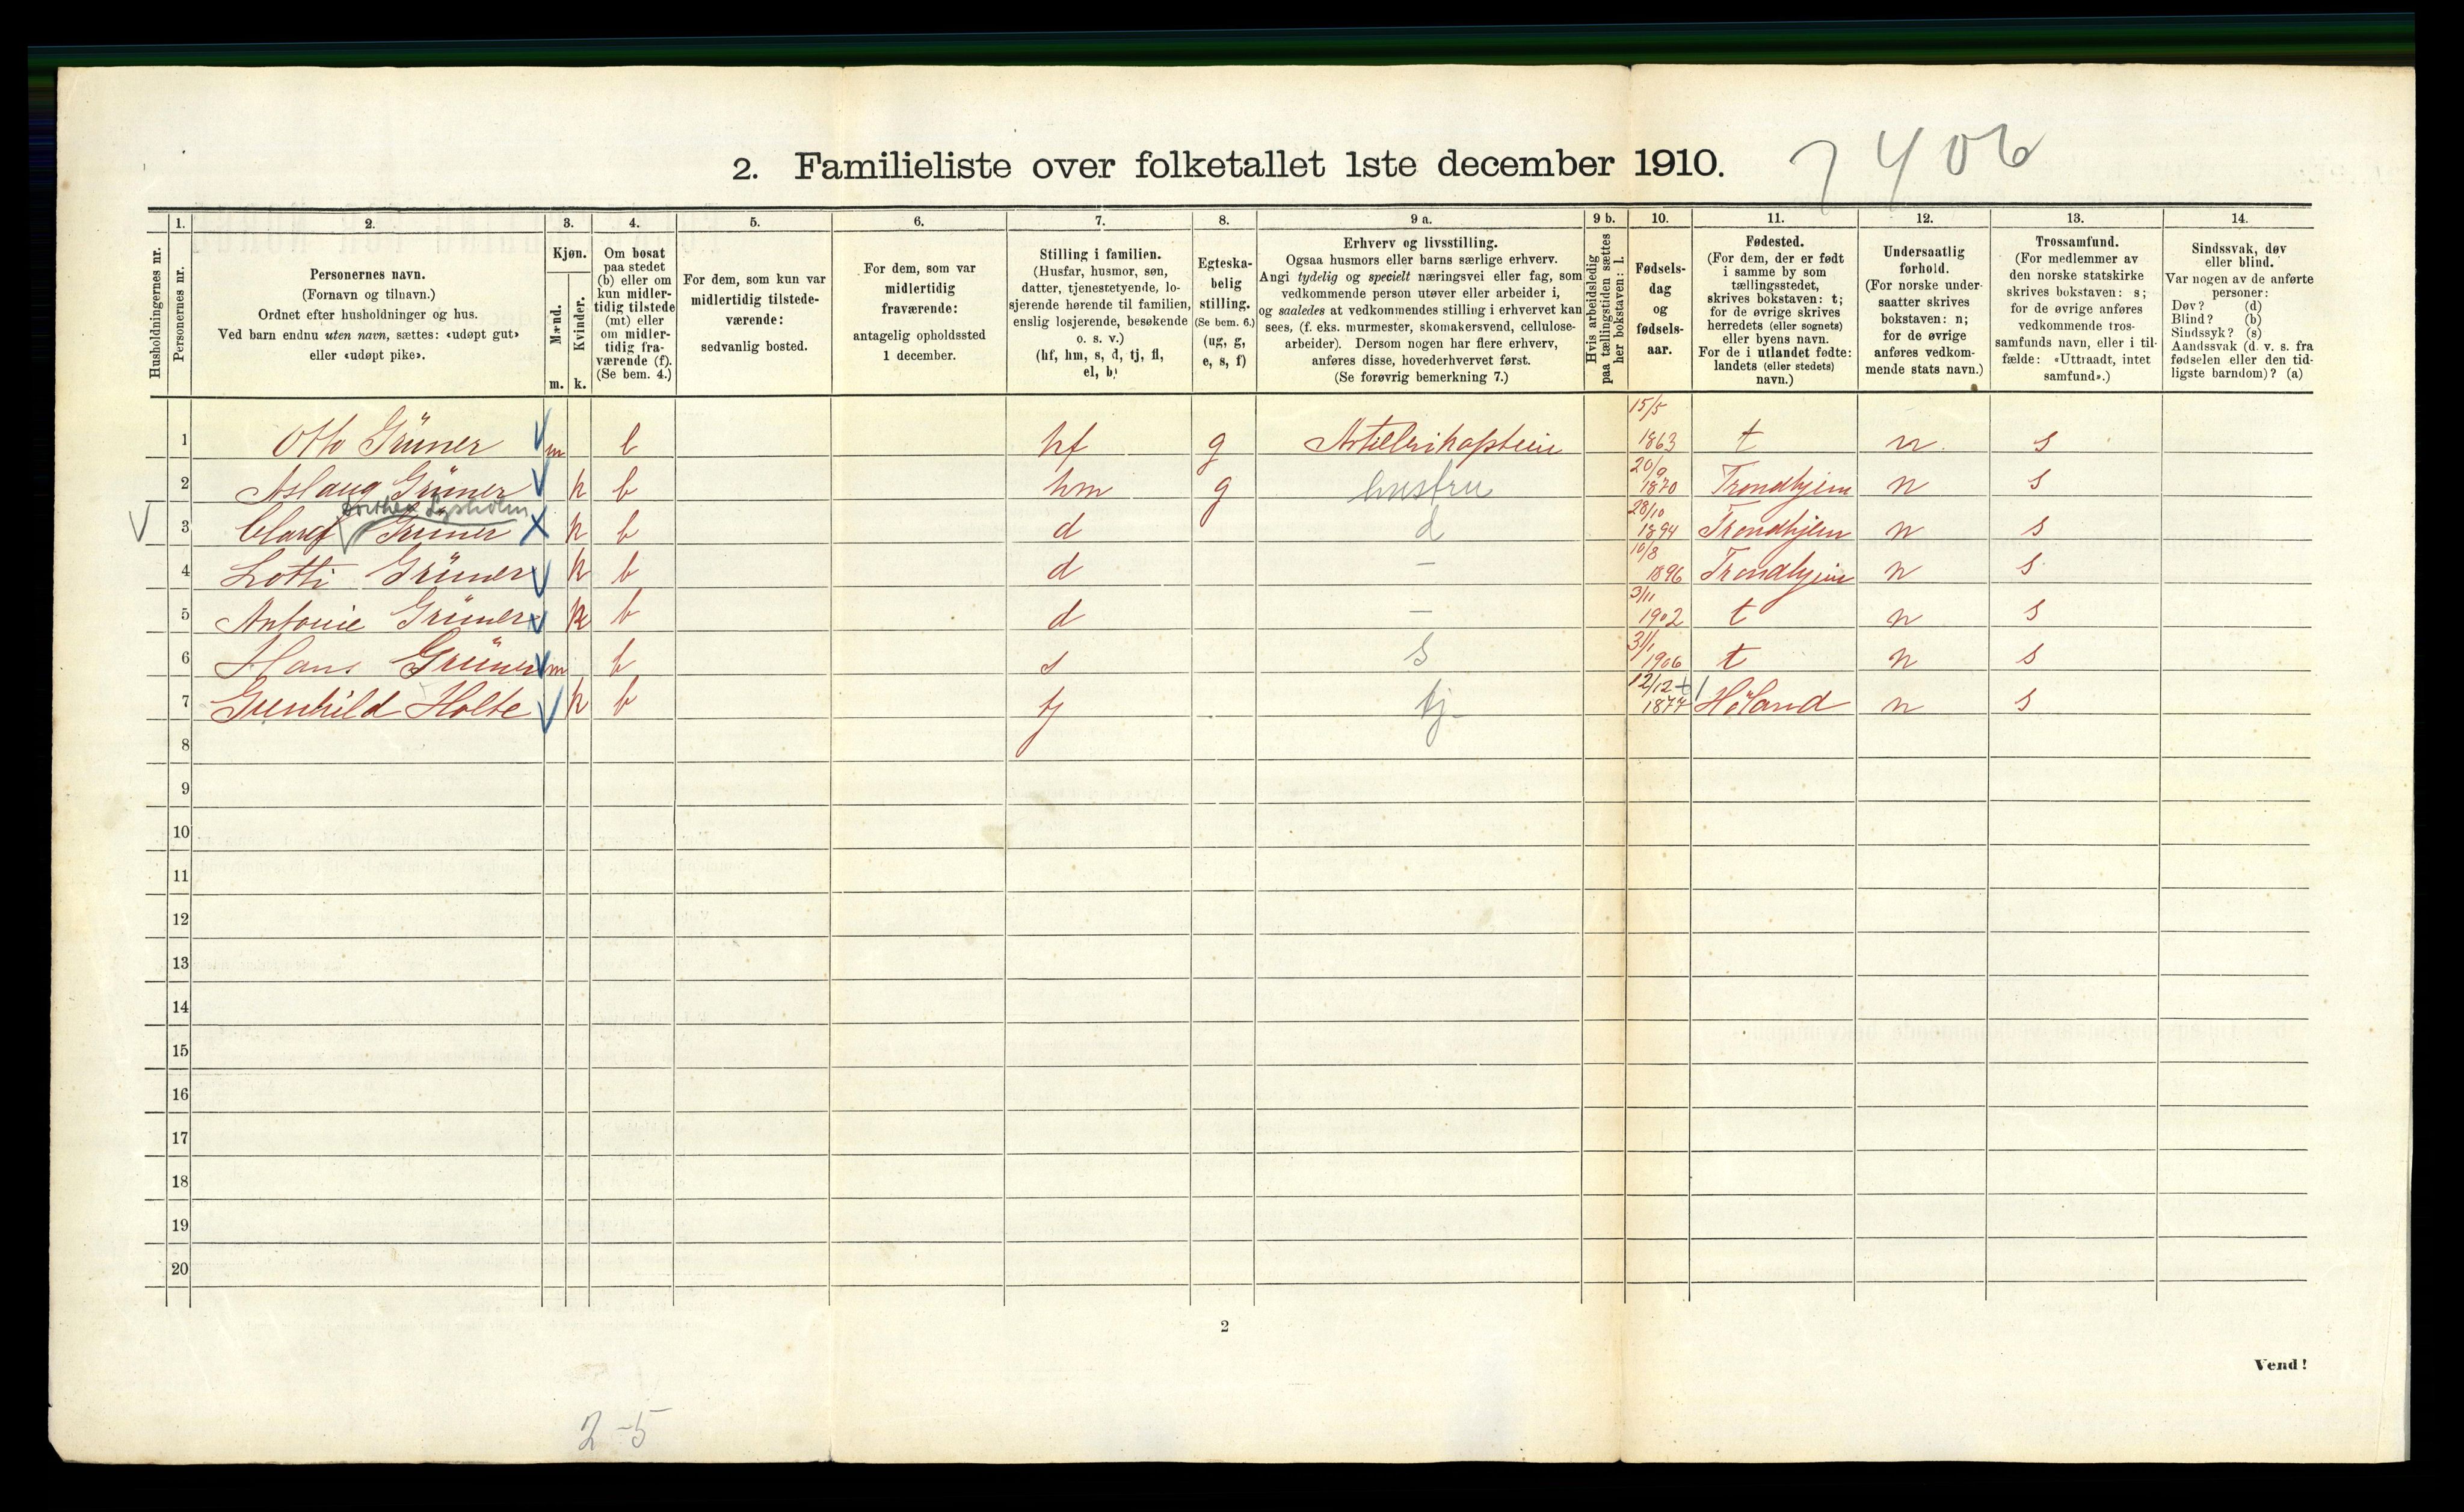 2. Familieliste over folketallet 1ste december 1910.
7406
Husholdningernes nr.
1. Personernes nr.
2. Personernes navn.
(Fornavn og tilnavn.)
Ordnet efter husholdninger og hus.
Ved barn endnu uten navn, sættes: «udøpt gut»
eller «udøpt pike».
3. Kjøn.
Mænd. m.
Kvinder. k.
4. Om bosat
paa stedet
(b) eller om
kun midler-
tidig tilstede
(mt) eller
om midler-
tidig fra-
værende (f).
(Se bem. 4.)
5. For dem, som kun var
midlertidig tilstede-
værende:
sedvanlig bosted.
6. For dem, som var
midlertidig
fraværende:
antagelig opholdssted
1 december.
7. Stilling i familien.
(Husfar, husmor, søn,
datter, tjenestetyende, lo-
sjerende hørende til familien,
enslig losjerende, besøkende
o. s. v.)
(hf, hm, s, d, tj, fl,
el, b)
8. Egteska-
belig
stilling.
(Se bem. 6.)
(ug, g,
e, s, f)
9 a. Erhverv og livsstilling.
Ogsaa husmors eller barns særlige erhverv.
Angi tydelig og specielt næringsvei eller fag, som
vedkommende person utøver eller arbeider i,
og saaledes at vedkommendes stilling i erhvervet kan
sees, (f. eks. murmester, skomakersvend, cellulose-
arbeider). Dersom nogen har flere erhverv,
anføres disse, hovederhvervet først.
(Se forøvrig bemerkning 7.)
9 b. Hvis arbeidsledig
paa tællingstiden sættes
her bokstaven: l.
10. Fødsels-
dag
og
fødsels-
aar.
11. Fødested.
(For dem, der er født
i samme by som
tællingsstedet,
skrives bokstaven: t;
for de øvrige skrives
herredets (eller sognets)
eller byens navn.
For de i utlandet fødte:
landets (eller stedets)
navn.)
12. Undersaatlig
forhold.
(For norske under-
saatter skrives
bokstaven: n;
for de øvrige
anføres vedkom-
mende stats navn.)
13. Trossamfund.
(For medlemmer av
den norske statskirke
skrives bokstaven: s;
for de øvrige anføres
vedkommende tros-
samfunds navn, eller i til-
fælde: «Uttraadt, intet
samfund».)
14. Sindssvak, døv
eller blind.
Var nogen av de anførte
personer:
Døv? (d)
Blind? (b)
Sindssyk? (s)
Aandssvak (d. v. s. fra
fødselen eller den tid-
ligste barndom)? (a)
1 Otto Grüner m b hf g Artillerikaptein 15/5 1863 t n. s
2 Aslaug Grüner k b hm g hustru 20/9 1870 Trondhjem n s
Dorthea Lysholm
3 Clara Grüner k b d d 28/10 1894 Trondhjem n s
4 Lotti Grüner k b d — 10/8 1896 Trondhjem n s
5 Antonie Grüner k b d — 3/11 1902 t n s
6 Hans Grüner m b s S 31/1 1906 t n s
7 Gunhild Holte k b tj tj 12/12 1877 Høland n s
8
9
10
11
12
13
14
15
16
17
18
19
20
2
Vend!
2-5